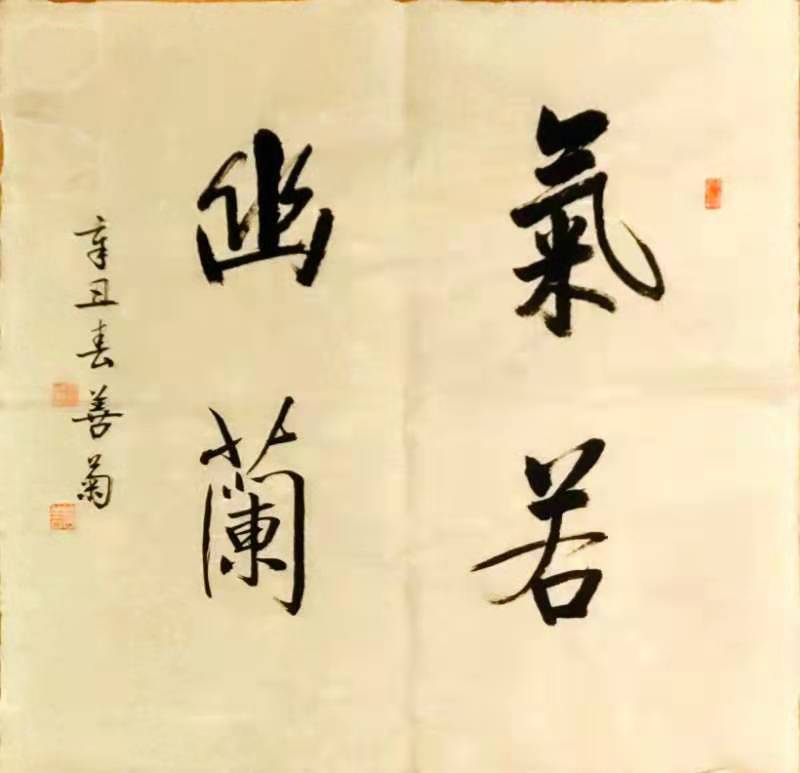 氣若
幽蘭
辛丑春善菊